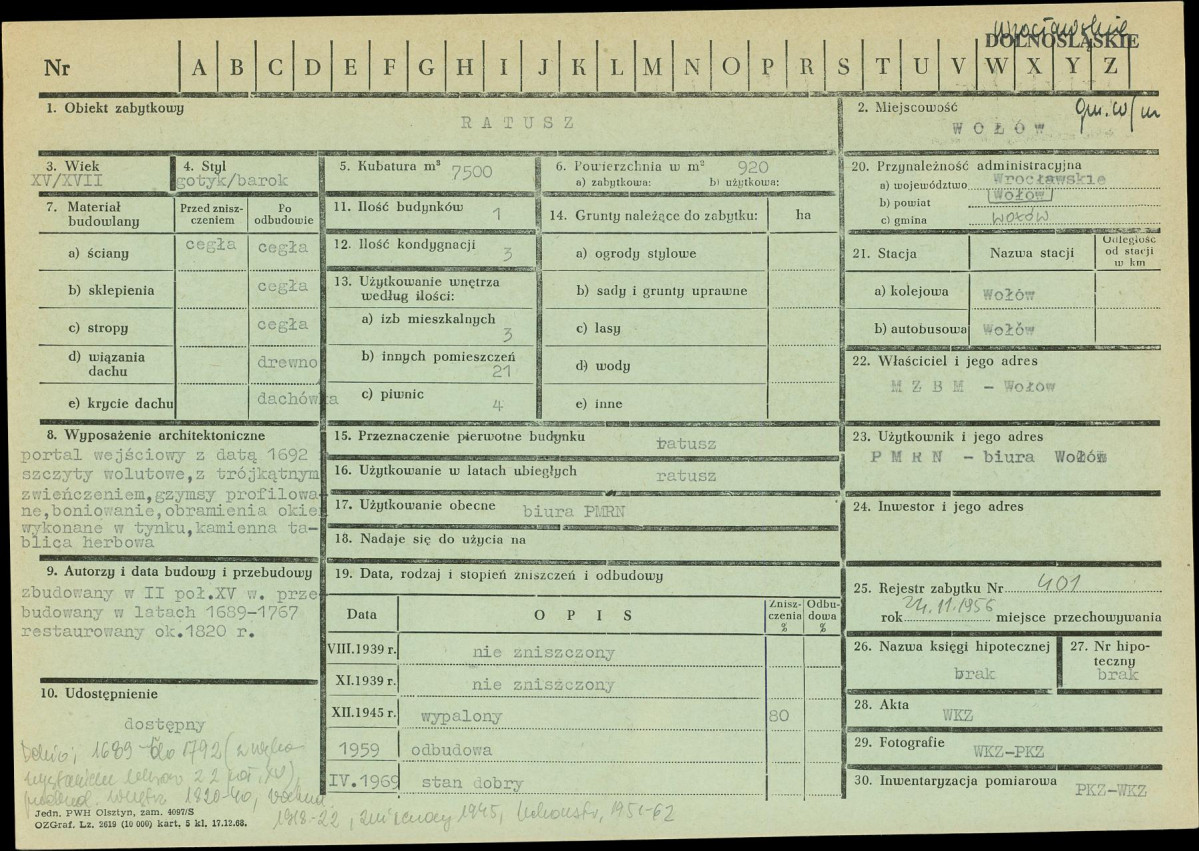 wrocławskie
DOLNOŚLĄSKIE
Nr A B C D E F G H I J K L M N O P R S T U V W X Y Z
1. Obiekt zabytkowy
RATUSZ
2. Miejscowość
WOŁÓW
gm. w/m
3. Wiek
XV/XVII
4. Styl
gotyk/barok
5. Kubatura m³ 7500
6. Powierzchnia w m² 920
a) zabytkowa: b) użytkowa:
20. Przynależność administracyjna
a) województwo Wrocławskie
b) powiat Wołów
c) gmina Wołów
7. Materiał budowlany
Przed zniszczeniem
Po odbudowie
a) ściany cegła cegła
b) sklepienia cegła
c) stropy cegła
d) wiązania dachu drewno
e) krycie dachu dachówka
11. Ilość budynków 1
12. Ilość kondygnacji 3
13. Użytkowanie wnętrza według ilości:
a) izb mieszkalnych 3
b) innych pomieszczeń 21
c) piwnic 4
14. Grunty należące do zabytku: ha
a) ogrody stylowe
b) sady i grunty uprawne
c) lasy
d) wody
e) inne
21. Stacja Nazwa stacji Odległość od stacji w km
a) kolejowa Wołów
b) autobusowa Wołów
22. Właściciel i jego adres
MZBM - Wołów
8. Wyposażenie architektoniczne
portal wejściowy z datą 1692
szczyty wolutowe,z trójkątnym
zwieńczeniem,gzymsy profilowa
ne,boniowanie,obramienia okien
wykonane w tynku,kamienna ta-
blica herbowa
15. Przeznaczenie pierwotne budynku ratusz
16. Użytkowanie w latach ubiegłych ratusz
17. Użytkowanie obecne biura PMRN
18. Nadaje się do użycia na
23. Użytkownik i jego adres
PMRN - biura Wołów
24. Inwestor i jego adres
9. Autorzy i data budowy i przebudowy
zbudowany w II poł.XV w. prze
budowany w latach 1689-1767
restaurowany ok.1820 r.
19. Data, rodzaj i stopień zniszczeń i odbudowy
Data OPIS Zniszczenia % Odbudowa %
VIII.1939 r. nie zniszczony
XI.1939 r. nie zniszczony
XII.1945 r. wypalony 80
1959 odbudowa
IV.1969 stan dobry
25. Rejestr zabytku Nr 401
rok 24.11.1956 miejsce przechowywania
26. Nazwa księgi hipotecznej
brak
27. Nr hipoteczny
brak
28. Akta
WKZ
29. Fotografie
WKZ-PKZ
30. Inwentaryzacja pomiarowa
PKZ-WKZ
10. Udostępnienie
dostępny
1689 1792 (z
z 2 poł. XV)
wnętrz 1820-40,
1918-22, zniszczony 1945, 1951-62
Jedn. PWH Olsztyn, zam. 4097/S
OZGraf. Lz. 2619 (10 000) kart. 5 kl. 17.12.68.